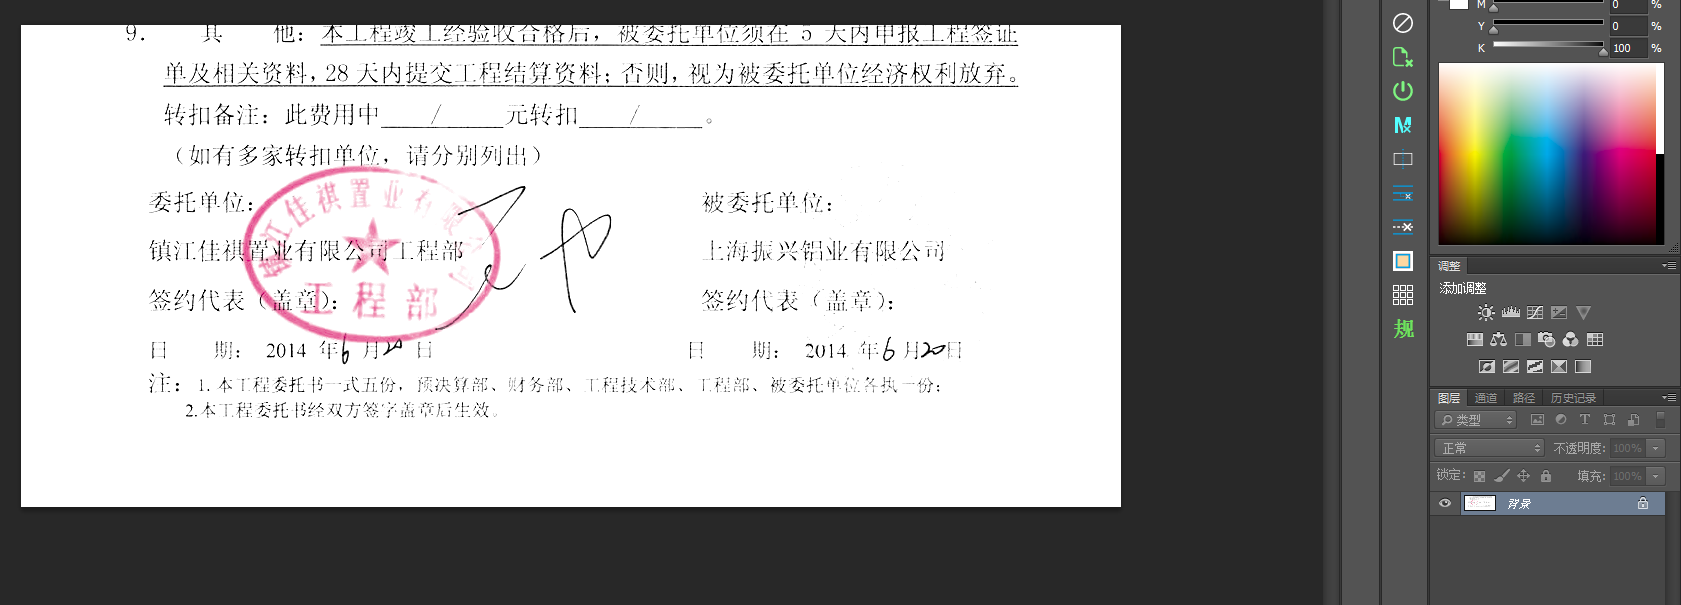 9. 其 他：本工程竣工经验收合格后，被委托单位须在 5 天内申报工程签证
单及相关资料，28 天内提交工程结算资料；否则，视为被委托单位经济权利放弃。
转扣备注：此费用中____/_____元转扣____/_____。
（如有多家转扣单位，请分别列出）
委托单位： 被委托单位：
镇江佳祺置业有限公司工程部 上海振兴铝业有限公司
签约代表（盖章）： 签约代表（盖章）：
镇江佳祺置业有限公司
工程部
日 期： 2014 年6月20日 日 期： 2014 年6月20日
注：1. 本工程委托书一式五份，预决算部、财务部、工程技术部、工程部、被委托单位各执一份；
2.本工程委托书经双方签字盖章后生效。
M 0 %
Y 0 %
K 100 %
规
调整
添加调整
图层 通道 路径 历史记录
类型
正常 不透明度: 100%
锁定: 填充: 100%
背景